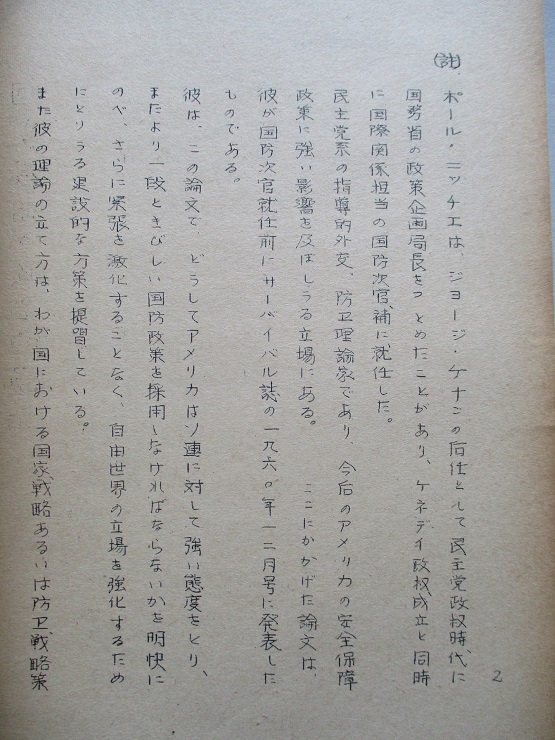 2
(註)、ポール・ニッチエは、ジョージ・ケナンの后任として民主党政权時代に
国务省の政策企画局長をつとめたことがあり、ケネデイ政权成立と同時
に国際関係担当の国防次官補に就任した。
民主党系の指導的外交、防卫理論家であり、今后のアメリカの安全保障
政策に強い影響を及ぼしうる立場にある。 ここにかかげた論文は、
彼が国防次官就任前にサーバイバル誌の一九六〇年一二月号に発表した
ものである。
彼は、この論文で、どうしてアメリカはソ連に対して強い態度をとり、
またより一段ときびしい国防政策を採用しなければならないかを明快に
のべ、さらに緊張を激化することなく、自由世界の立場を強化するため
にとりうる建設的な方策を提習している。
また彼の理論の立て方は、わが国における国家戦略あるいは防卫戦略策